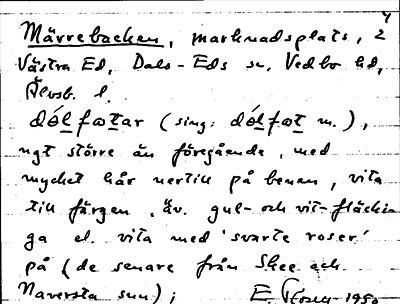 4
Märrebacken, marknadsplats, i
Västra Ed, Dals-Eds sn, Vedbo hd,
Älvsb. l.
dólføtar (sing: dólføt m.),
ngt större än föregående, med
mycket hår nertill på benen, vita
till färgen, äv. gul- och vit-fläcki-
ga el. vita med 'svarte roser'
på (de senare från Skee och
Naversta snr);